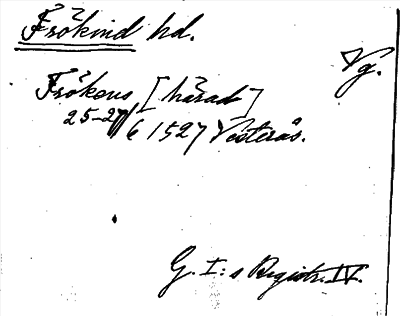 Frökind hd.
Vg.
Frökens [härad]
25-27/6 1527 Vesterås.
G. I:s Registr. IV.